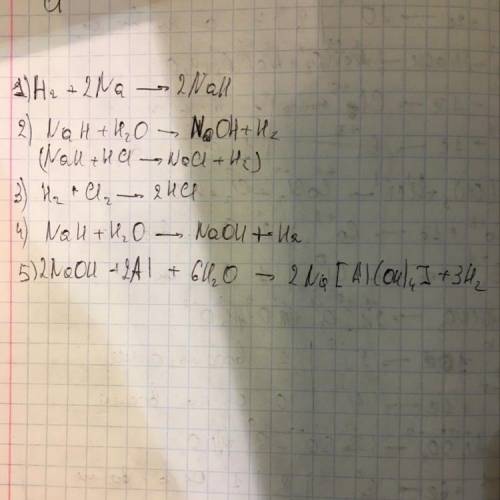 1) H₂ + 2Na → 2NaH
2) NaH + H₂O → NaOH + H₂
(NaH + HCl → NaCl + H₂)
3) H₂ + Cl₂ → 2HCl
4) NaH + H₂O → NaOH + H₂
5) 2NaOH + 2Al + 6H₂O → 2Na[Al(OH)₄] + 3H₂